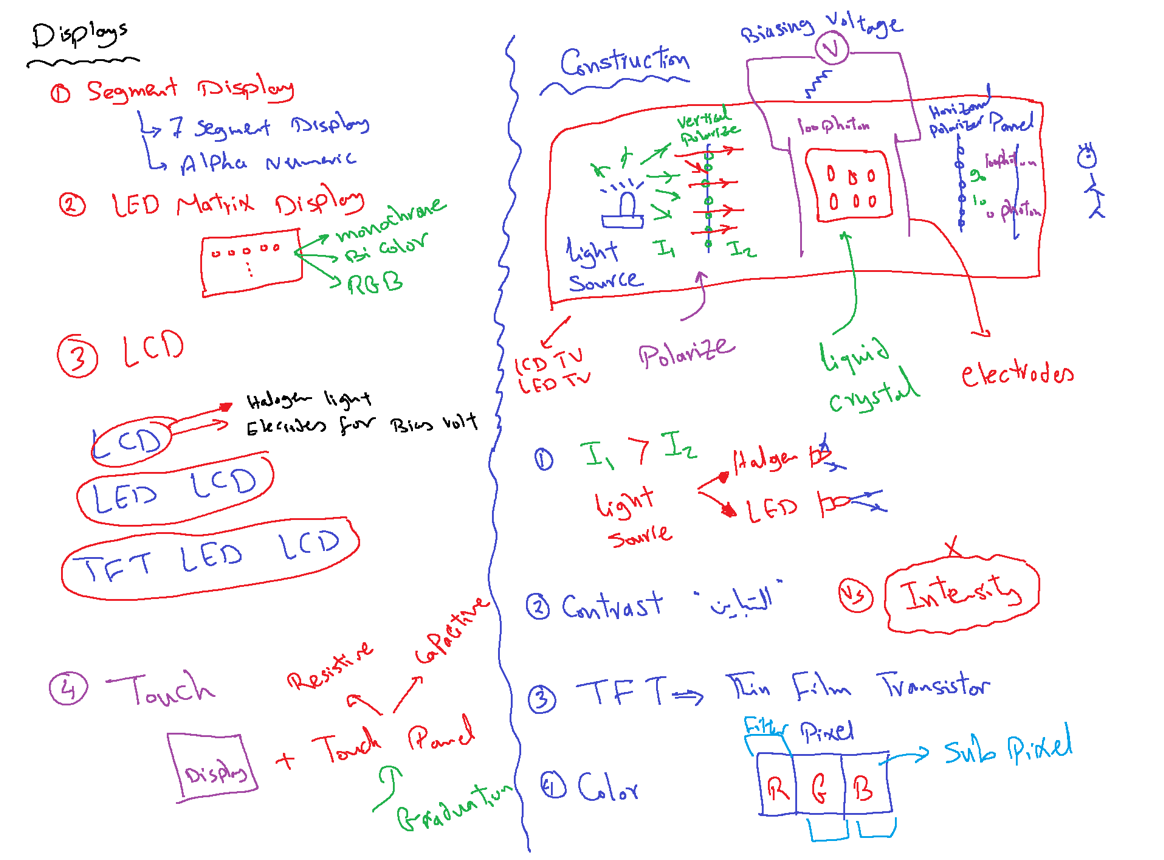 Displays
① Segment Display
7 Segment Display
Alpha Numeric
② LED Matrix Display
monochrome
Bi color
RGB
③ LCD
LCD
Halogen light
Electodes for Bias volt
LED LCD
TFT LED LCD
④ Touch
Display + Touch Panel
Resistive
Capacitive
Graduation
Construction
Biasing Voltage
V
Vertical
Polarize
100 photon
Horizonal
Polarizer
Panel
100 photon
90
10
0 photon
light
Source
I1
I2
LCD TV
LED TV
Polarize
liquid
crystal
electrodes
① I1 > I2
light
Source
Halogen
LED
② Contrast "التباين" Vs Intensity
X
③ TFT ⇒ Thin Film Transistor
Filter
Pixel
④ Color
R G B
Sub Pixel